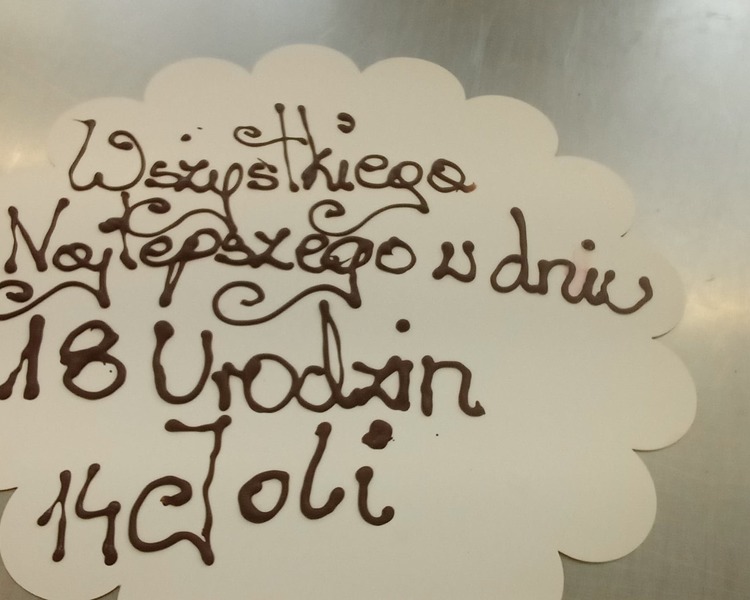 Wszystkiego
Najlepszego w dniu
18 Urodzin
14 Joli